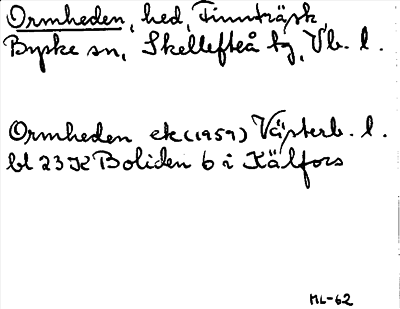 Ormheden, hed, Finnträsk,
Byske sn, Skellefteå tg, Vb. l.
Ormheden ek (1959) Västerb. l.
bl 23 K Boliden 6 i Källfors
ML-62